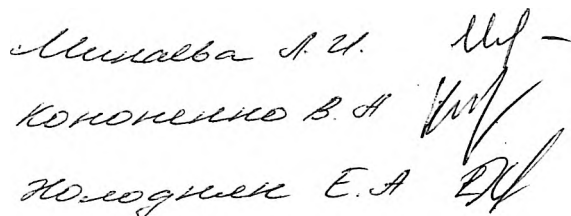 Минаева Л.И.
Кононенко В.Н
Холодняк Е.А